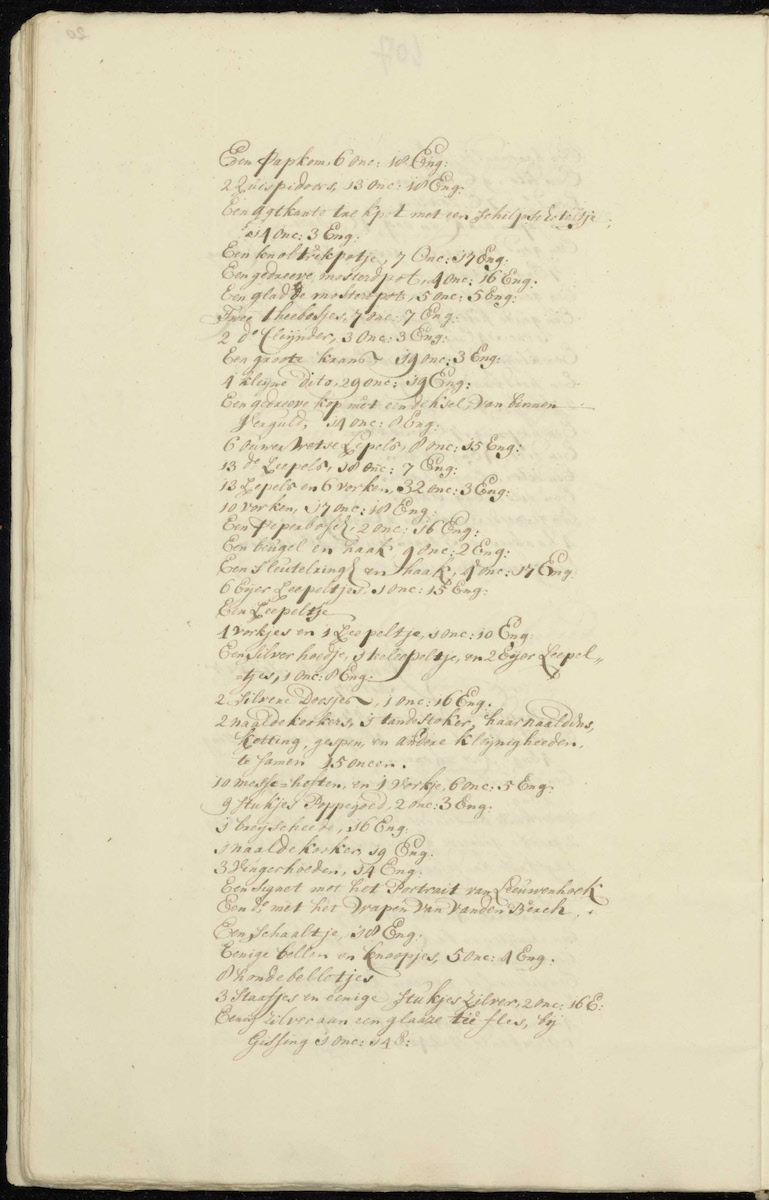 Een Papkom, 6 onc: 18 Eng:
2 Quispidoors, 13 onc: 18 Eng.
Een agtkante met een schelpschoteltje,
14 onc: 3 Eng.
Een knoltrekpotje, 7 Onc: 17 Eng:
Een gedreeve mosterdpot, 4 onc: 16 Eng:
Een gladde mosterdpot, 5 onc: 5 Eng:
Twee theebosjes, 7 onc: 7 Eng:
2 do Cleijnder, 3 Onc: 3 Eng:
Een groote kraan 19 onc: 3 Eng:
4 kleijne dito, 29 onc: 19 Eng:
Een gedreeve kop met een deksel, van binnen
Verguld, 14 onc: 8 Eng:
6 Ouwerwetse Lepels, 8 onc: 15 Eng:
13 do Leepels, 18 onc: 7 Eng:
13 Lepels en 6 vorken, 32 onc: 3 Eng:
10 vorken, 17 onc: 18 Eng:
Een Peperbosch, 2 onc: 16 Eng:
Een beugel en haak 9 onc: 2 Eng:
Een sleutelringh en haak, 4 onc: 17 Eng.
6 Eijer Leepeltjes, 1 onc: 15 Eng:
Een Leepeltje
4 vorkjes en 1 Leepeltje, 1 onc: 10 Eng.
Een silver hoedje, 1 leepeltje, en 2 Eijer Leepel-
-tjes, 1 onc: 8 Eng.
2 Silvere Doosjes, 1 onc: 16 Eng.
2 naaldekookers, 1 tandestoker, haarnaaldens,
ketting, gespen, en andere kleijnigheeden,
te samen 15 oncen.
10 messe-heften, en 1 vorkje, 6 onc: 5 Eng.
9 stukjes Poppegoed, 2 onc: 3 Eng.
1 breijscheede, 16 Eng.
1 naaldekooker, 19 Eng.
3 Vingerhoeden, 14 Eng.
Een Signet met het Portrait van Leeuwenhoek
Een do, met het Wapen van Vanden Berch.
Een schaaltje, 18 Eng.
Eenige bellen en knoopjes, 5 onc: 4 Eng.
8 hondebelletjes
3 Staafjes en eenige stukjes zilver, 2 onc: 16 E:
Eenig zilver aan een glaaze fles, bij
Gissing 1 onc: 14 E: